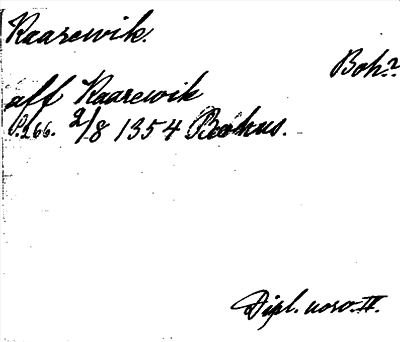 Raarewik.
Boh?
aff Raarewik
P.266. 2/8 1354 Bohus.
Dipl. norv. II.